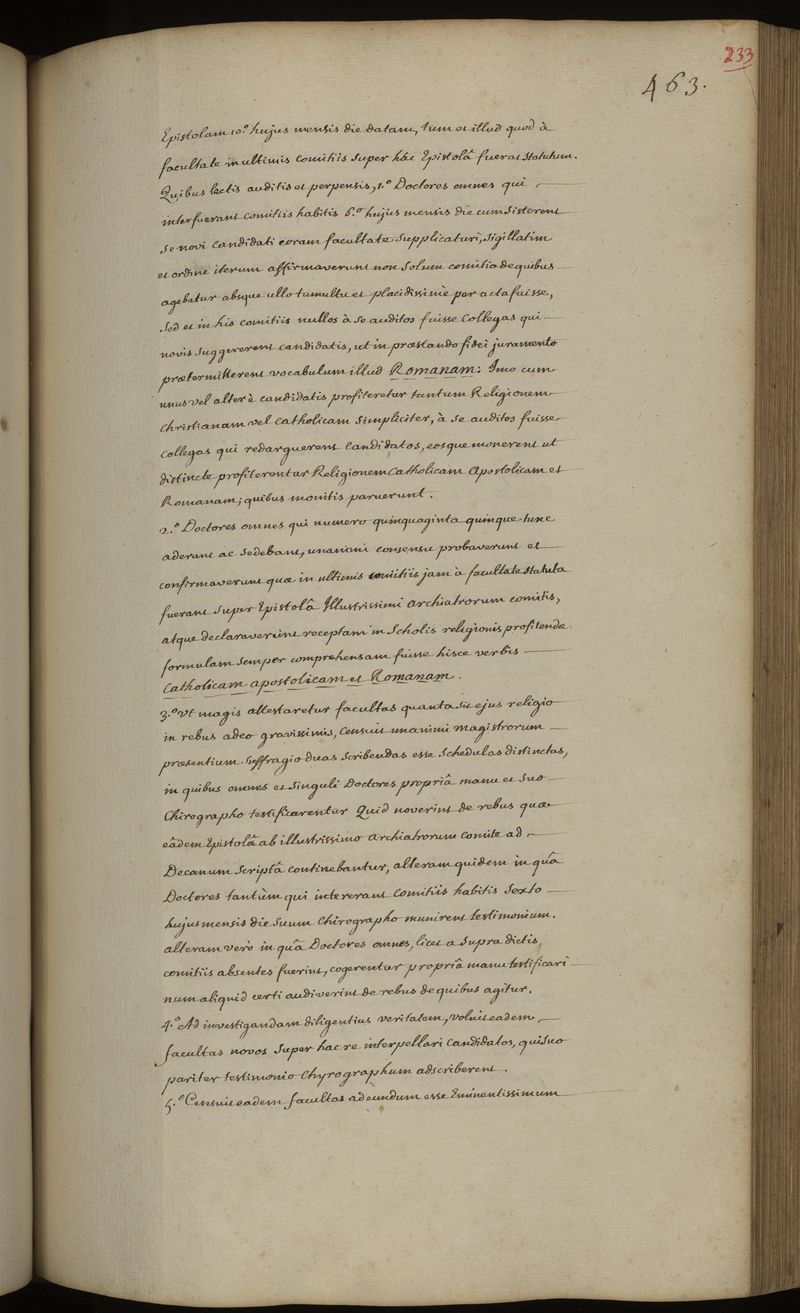 233
463.
Epistolam 10.º hujus mensis die datam, tum et illud quod à
facultate in ultimis comitiis super hâc Epistolâ fuerat statutum.
Quibus lectis auditis et perpensis, 1.º Doctores omnes qui
interfuerant comitiis habitis 6.º hujus mensis die cum sisterent
se novi candidati coram facultate supplicaturi, sigillatim
et ordine iterum affirmaverunt non solum comitia de quibus
agebatur absque ullo tumultu et placidissimè peracta fuisse,
sed et in his comitiis nullos à se auditos fuisse Collegas qui
novis suggererent candidatis, ut in præstando fidei juramento
prætermitterent vocabulum illud Romanam: Imo cum
unus vel alter è candidatis profiteretur tantum Religionem
christianam vel catholicam simpliciter, à se auditos fuisse
collegas qui redarguerent candidatos, eosque monerent ut
distincte profiterentur Religionem Catholicam apostolicam et
Romanam; quibus monitis paruerunt.
2.º Doctores omnes qui numero quinquaginta quinque tunc
aderant ac sedebant, unanimi consensu probaverunt et
confirmaverunt quæ in ultimis comitiis jam à facultate statuta
fuerant super Epistolâ Illustrissimi archiatrorum comitis,
atque declaraverunt receptam in Scholis religionis profitendæ
formulam semper comprehensam fuisse hisce verbis
Catholicam apostolicam et Romanam.
3.º Ut magis attestaretur facultas quanta sit ejus religio
in rebus adeo gravissimis, censuit unanimi magistrorum
præsentium suffragio duas scribendas esse schedulas distinctas,
in quibus omnes et singuli Doctores propriâ manu et suo
chirographo testificarentur Quid noverint de rebus quæ
eâdem Epistolâ ab illustrissimo archiatrorum comite ad
Decanum scriptâ continebantur, alteram quidem in quâ
Doctores tantùm qui intererant comitiis habitis sexto
hujus mensis die suum chirographo munirent testimonium.
alteram verò in quâ Doctores omnes, licet a supra dictis
comitiis absentes fuerint, cogerentur propriâ manu testificari
num aliquid certi audiverint de rebus de quibus agitur.
4.º Ad investigandam diligentius veritatem, voluit eadem
facultas novos super hac re interpellari candidatos, qui suo
pariter testimonio chyrographum adscriberent.
5.º Censuit eadem facultas adeundum esse Eminentissimum